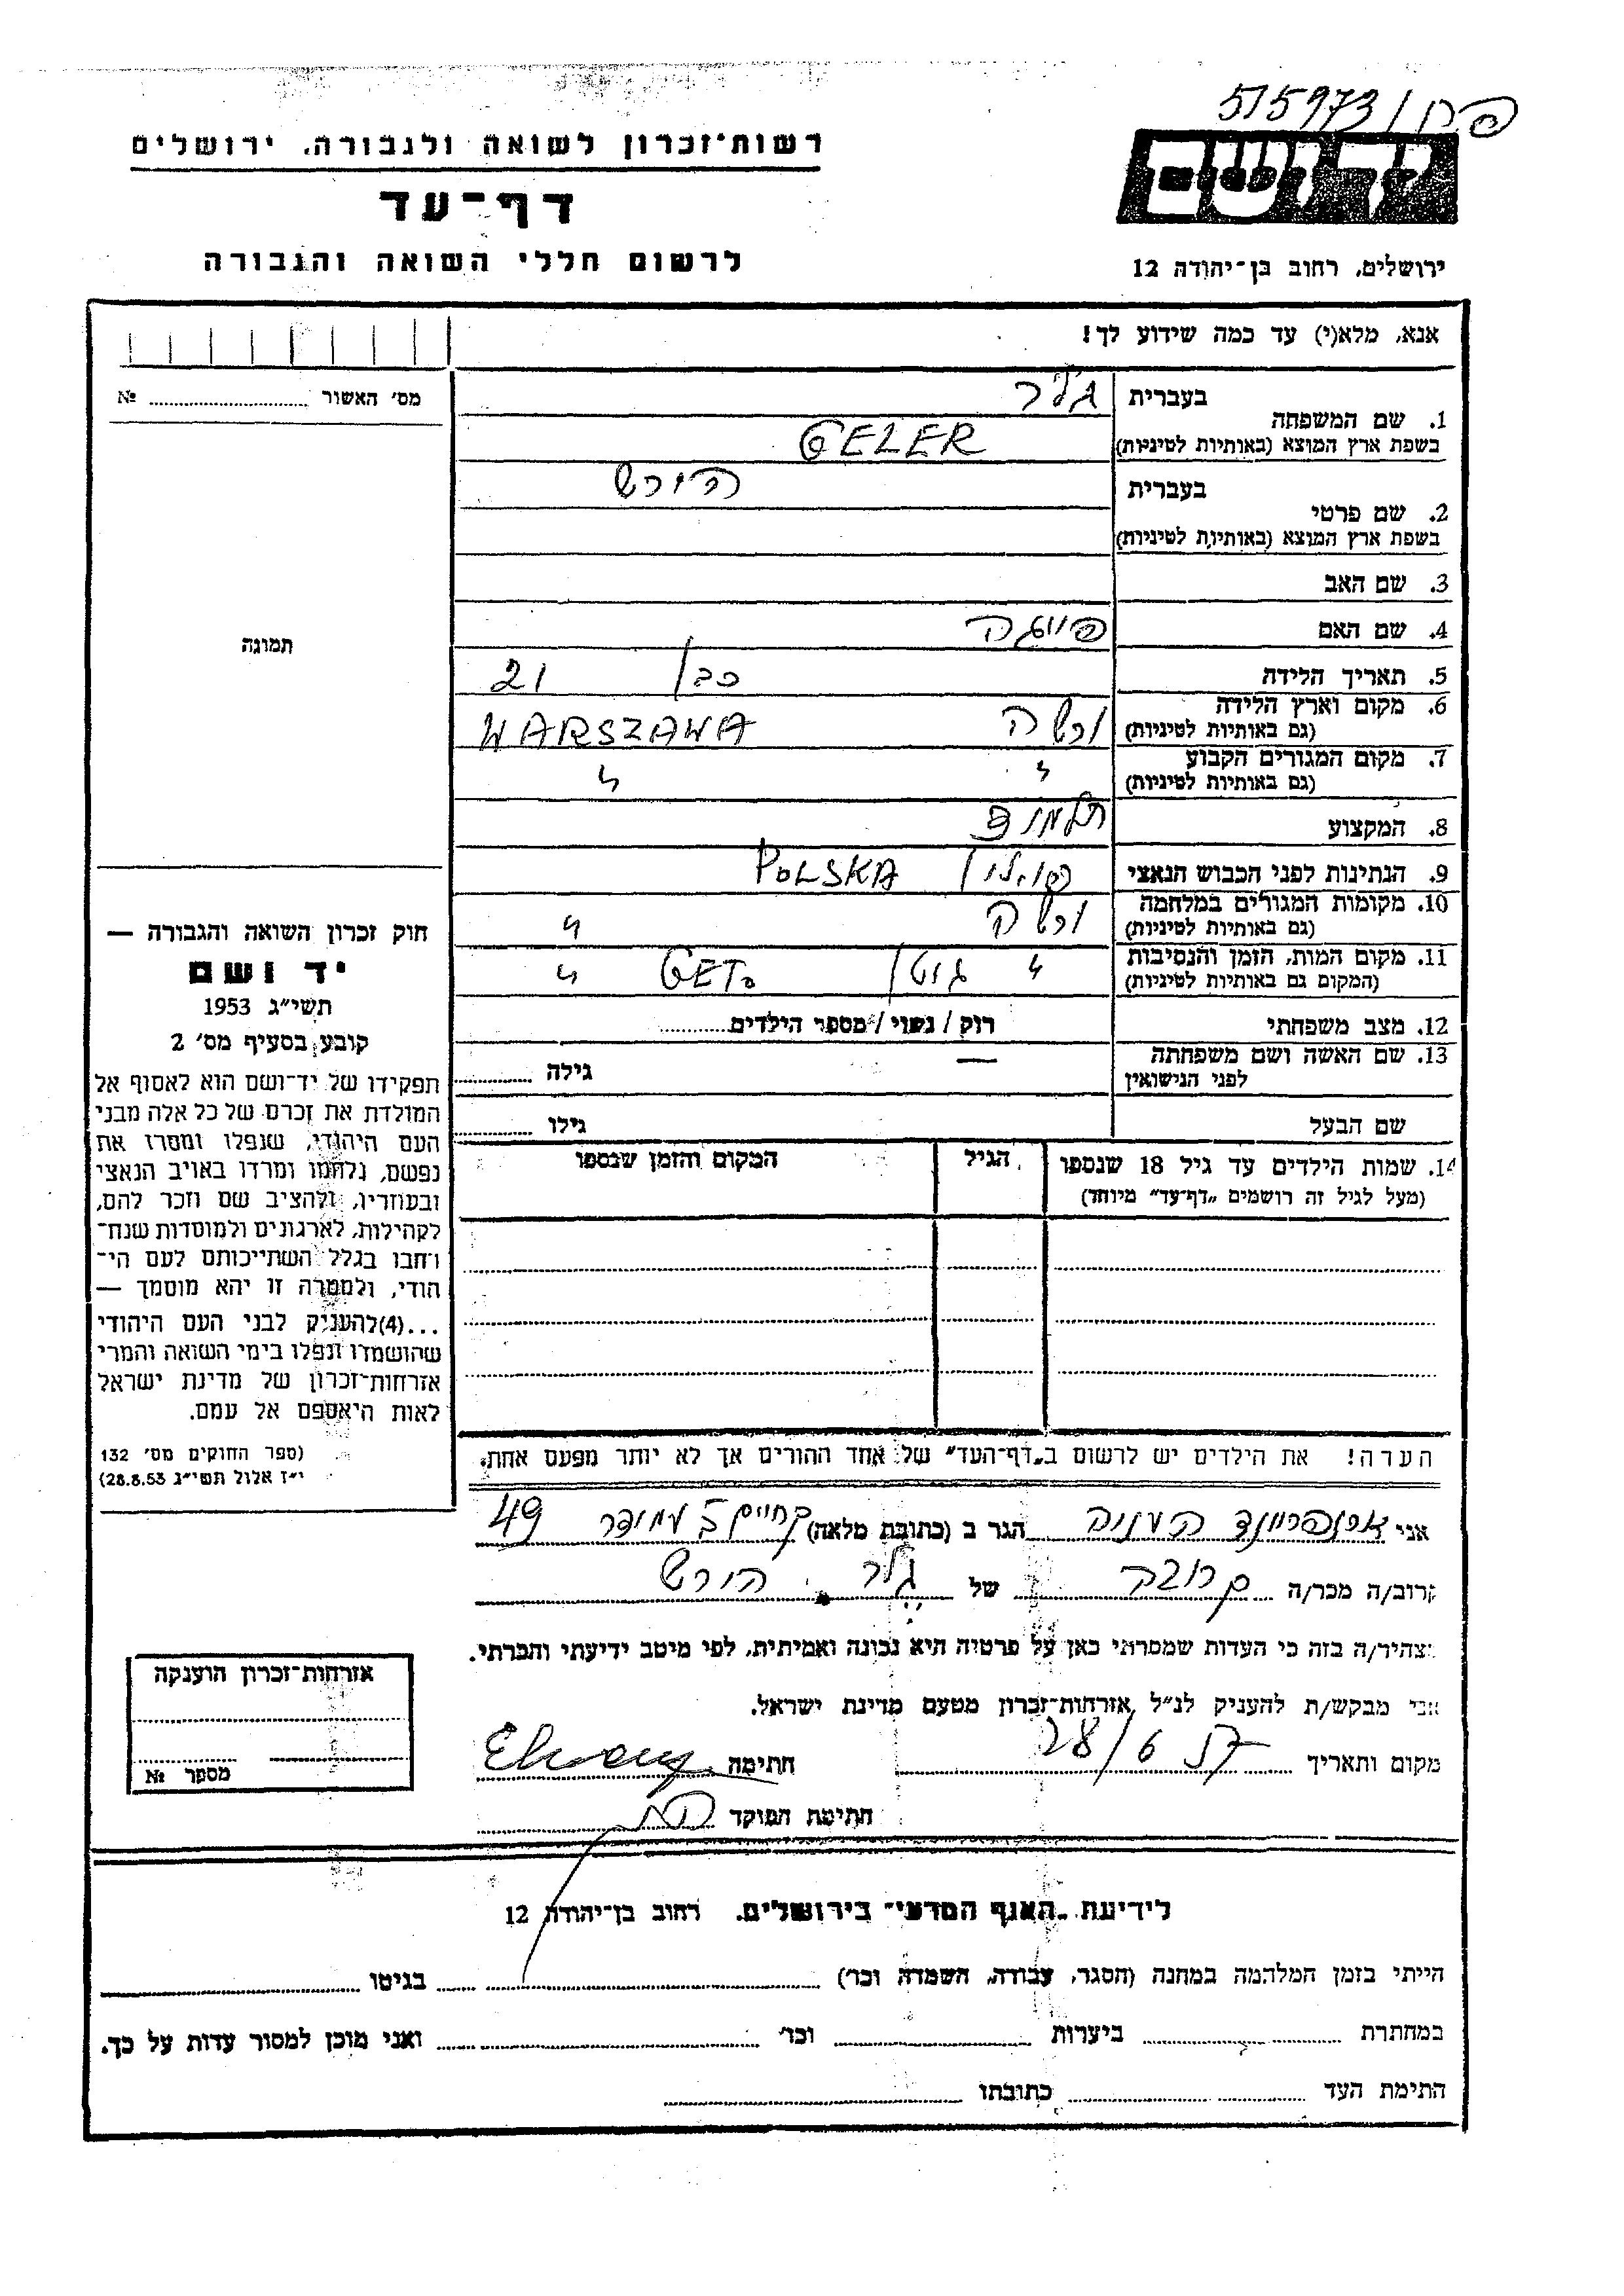 פח / 515973
יד ושם
רשות־זכרון לשואה ולגבורה, ירושלים
דף־עד
לרשום חללי השואה והגבורה
ירושלים, רחוב בן־יהודה 12
אנא, מלא(י) עד כמה שידוע לך!
מס' האשור № 
1. שם המשפחה
בעברית גלר
בשפת ארץ המוצא (באותיות לטיניות) GELER
2. שם פרטי
בעברית הירש
בשפת ארץ המוצא (באותיות לטיניות)
3. שם האב
4. שם האם פייגה
5. תאריך הלידה בן 21
6. מקום וארץ הלידה (גם באותיות לטיניות) ורשה WARSZAWA
7. מקום המגורים הקבוע (גם באותיות לטיניות) " "
8. המקצוע
9. הנתינות לפני הכבוש הנאצי פולין POLSKA
10. מקומות המגורים במלחמה (גם באותיות לטיניות) ורשה "
11. מקום המות, הזמן והנסיבות (המקום גם באותיות לטיניות) " גיטו GETO "
12. מצב משפחתי רוק / נשוי / מספר הילדים
13. שם האשה ושם משפחתה לפני הנישואין — גילה
שם הבעל גילו
14. שמות הילדים עד גיל 18 שנספו הגיל המקום והזמן שנספו
(מעל לגיל זה רושמים „דף־עד" מיוחד)
הערה! את הילדים יש לרשום ב„דף־העד" של אחד ההורים אך לא יותר מפעם אחת.
תמונה
חוק זכרון השואה והגבורה —
יד ושם
תשי"ג 1953
קובע בסעיף מס' 2
תפקידו של יד־ושם הוא לאסוף אל
המולדת את זכרם של כל אלה מבני
העם היהודי, שנפלו ומסרו את
נפשם, נלחמו ומרדו באויב הנאצי
ובעוזריו, ולהציב שם וזכר להם,
לקהילות, לארגונים ולמוסדות שנח־
רבו בגלל השתייכותם לעם הי־
הודי, ולמטרה זו יהא מוסמך —
...(4) להעניק לבני העם היהודי
שהושמדו ונפלו בימי השואה והמרי
אזרחות־זכרון של מדינת ישראל
לאות היאספם אל עמם.
(ספר החוקים מס' 132
י"ז אלול תשי"ג 28.8.53)
אני הגר ב (כתובת מלאה) 49
קרוב/ה מכר/ה קרובה של גלר הירש
מצהיר/ה בזה כי העדות שמסרתי כאן על פרטיה היא נכונה ואמיתית, לפי מיטב ידיעתי והכרתי.
אני מבקש/ת להעניק לנ"ל אזרחות־זכרון מטעם מדינת ישראל.
מקום ותאריך חתימה
חתימת הפוקד
אזרחות־זכרון הוענקה
מספר №
לידיעת „האגף המדעי" בירושלים, רחוב בן־יהודה 12
הייתי בזמן המלחמה במחנה (הסגר, עבודה, השמדה וכו') בגיטו
במחתרת ביערות וכו' ואני מוכן למסור עדות על כך.
חתימת העד כתובתו